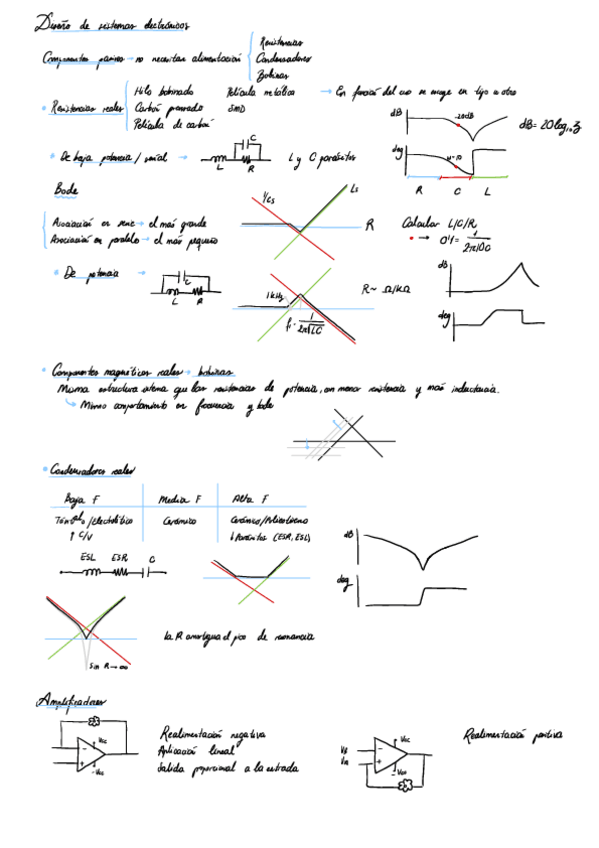 Diseño de sistemas electrónicos
Resistencias
Componentes pasivos → no necesitan alimentación Condensadores
Bobinas
Hilo bobinado Película metálica → En función del uso se escoge un tipo u otro
• Resistencias reales Carbón prensado SMD
Película de carbón
dB -20dB dB = 20 log10 Z
• De baja potencia / señal → L C R L y C parásitos
deg
R C L
Bode
1/Cs Ls R
Asociación en serie → el más grande
Asociación en paralelo → el más pequeño
Calcular L/C/R
• → 0'1 =
• De potencia → C L R
1kHz
f = 1/2π√LC
R ~ Ω/kΩ
dB
deg
• Componentes magnéticos reales → bobinas
Misma estructura interna que las resistencias de potencia, con menor resistencia y más inductancia.
↳ Mismo comportamiento en frecuencia y bode
• Condensadores reales
Baja F Media F Alta F
Tántalo/Electrolítico Cerámico Cerámico/Poliestireno
↑ C/V ↓ Parásitos (ESR, ESL)
ESL ESR C
dB
deg
La R amortigua el pico de resonancia
Sin R → ∞
Amplificadores
Vcc
-Vcc
Realimentación negativa
Aplicación lineal
Salida proporcional a la entrada
Vcc
Realimentación positiva